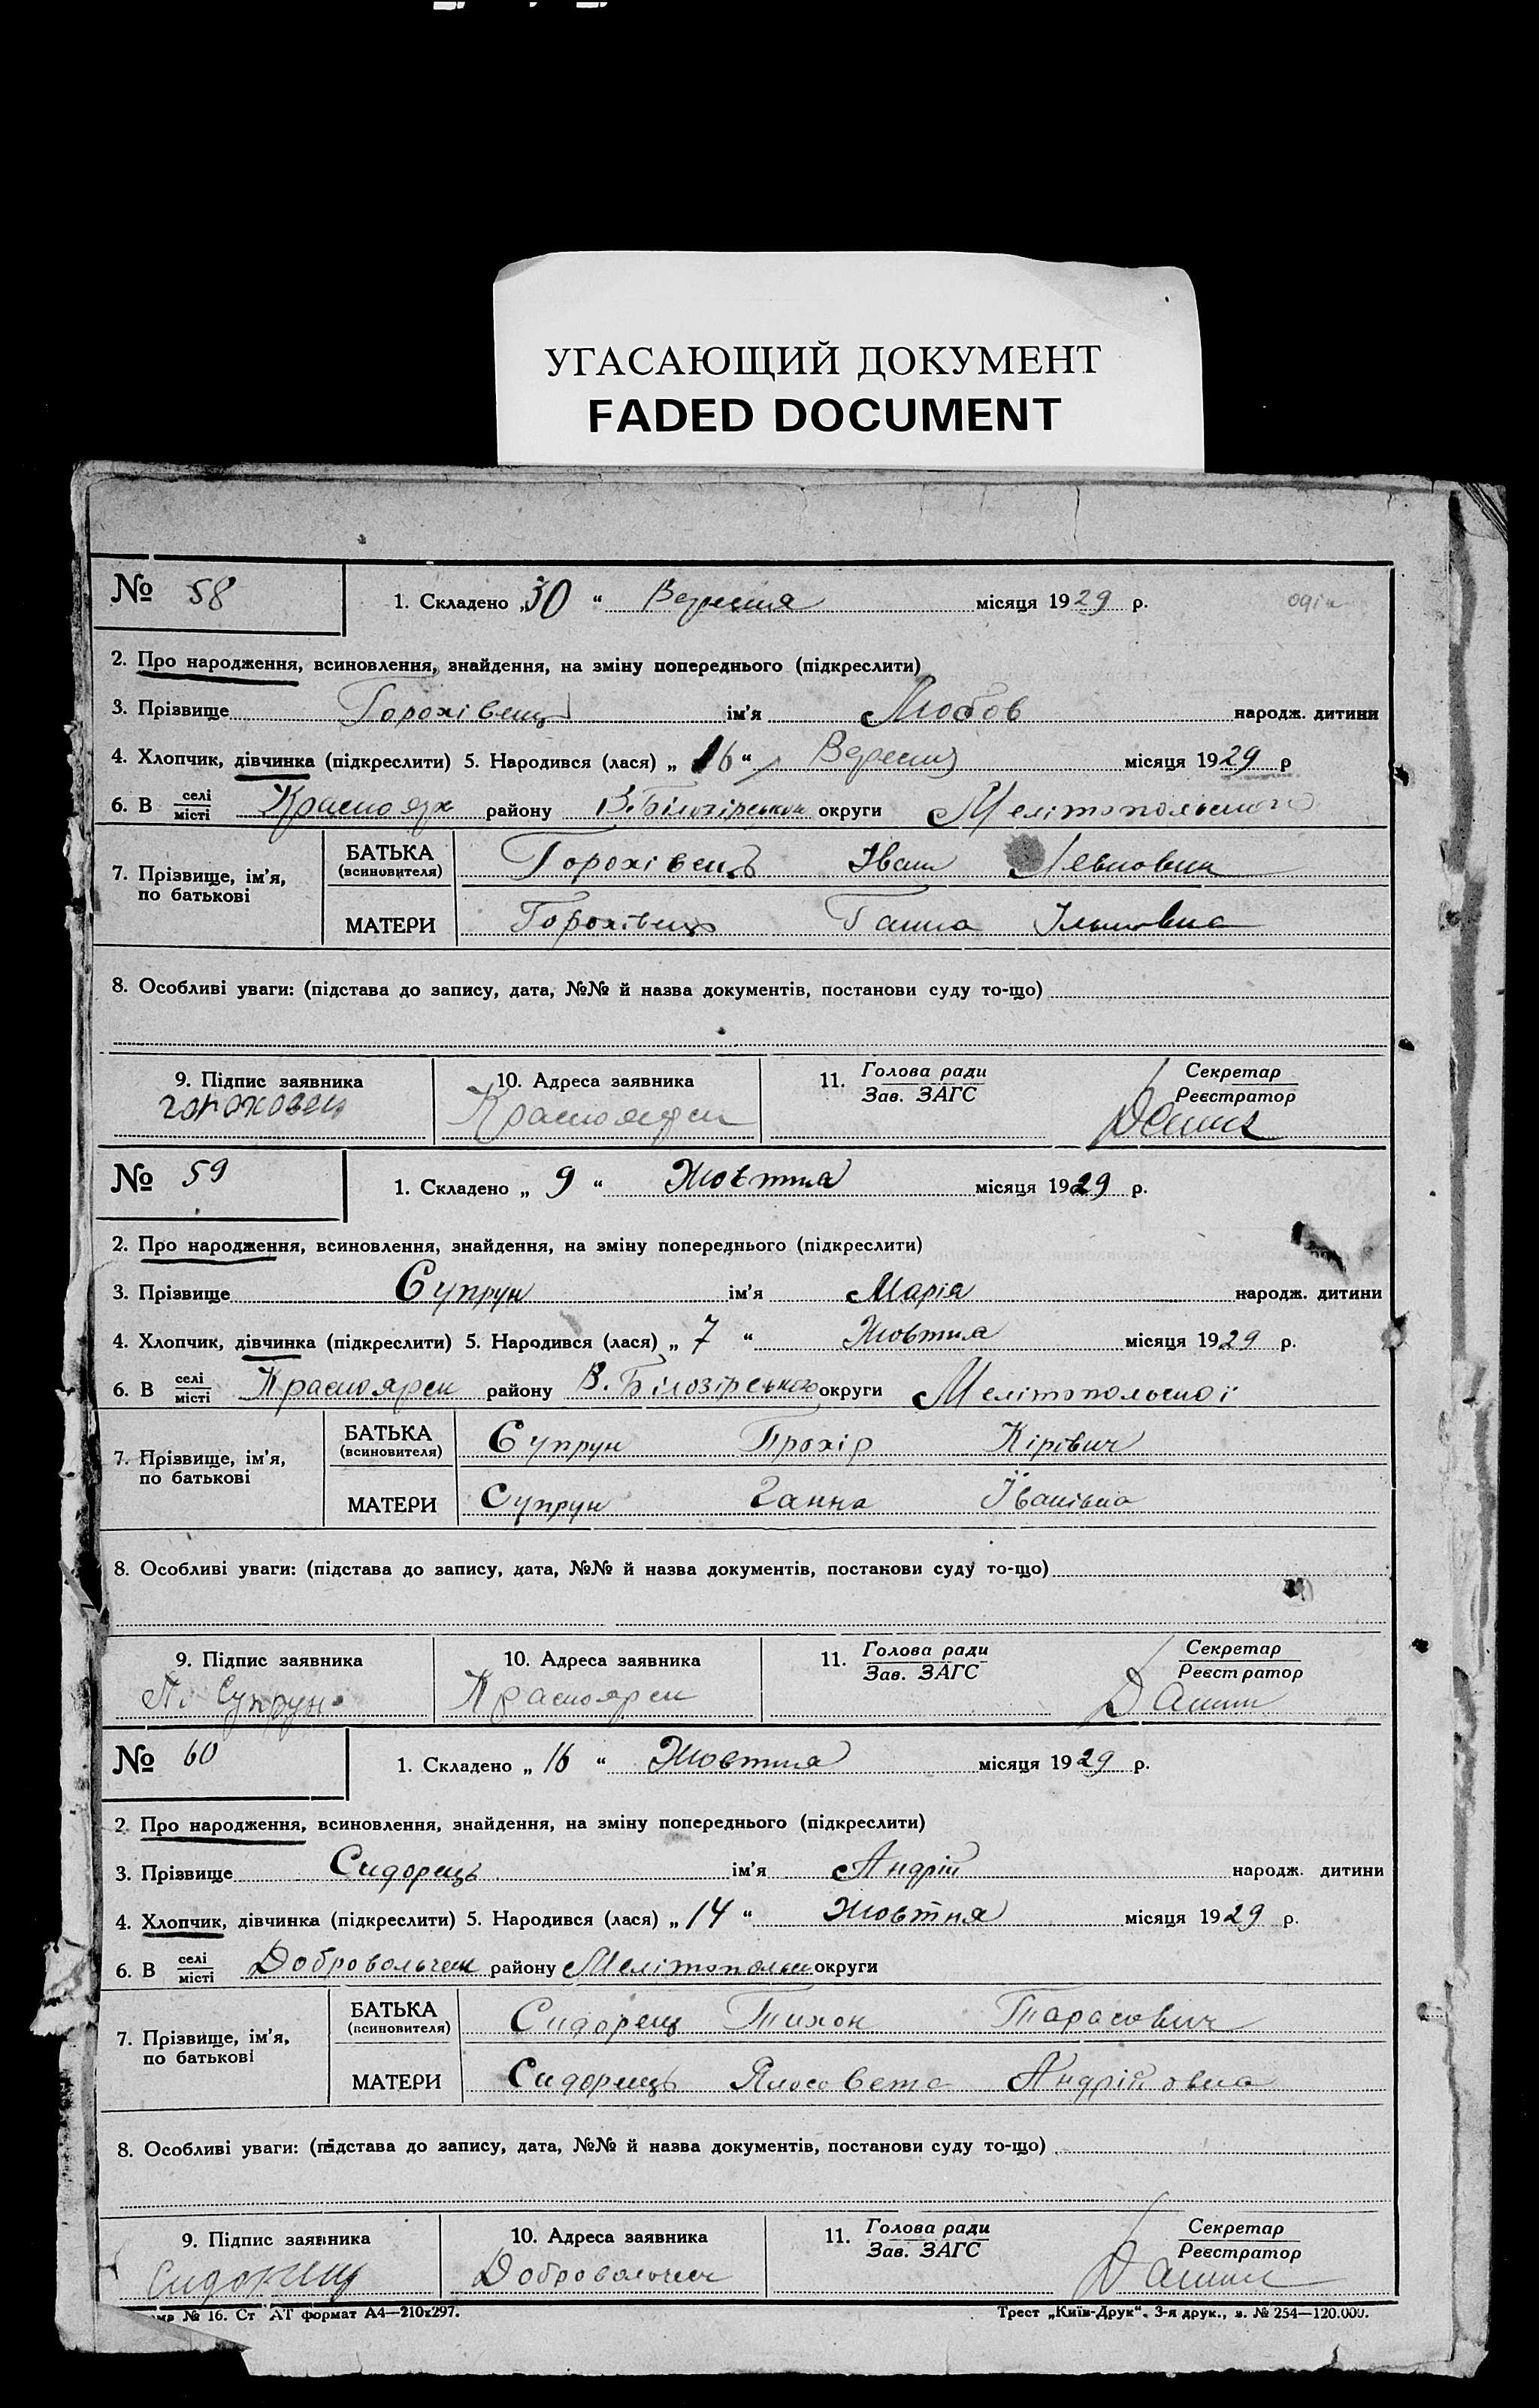 УГАСАЮЩИЙ ДОКУМЕНТ
FADED DOCUMENT
№ 58
1. Складено „30“ Вересня місяця 1929 р.
2. Про народження, всиновлення, знайдення, на зміну попереднього (підкреслити)
3. Прізвище Горохівець ім’я Любов народж. дитини
4. Хлопчик, дівчинка (підкреслити) 5. Народився (лася) „16“ Вересня місяця 1929 р
6. В селі місті Красноярк району В.Білозірськои округи Мелітопольского
7. Прізвище, ім’я, по батькові
БАТЬКА (всиновителя) Горохівець Іван
МАТЕРИ Горохівець Ганна
8. Особливі уваги: (підстава до запису, дата, №№ й назва документів, постанови суду то-що)
9. Підпис заявника 10. Адреса заявника 11. Голова ради Зав. ЗАГС Секретар Реєстратор
гороховец
№ 59
1. Складено „9“ Жовтня місяця 1929 р.
2. Про народження, всиновлення, знайдення, на зміну попереднього (підкреслити)
3. Прізвище Супрун ім’я Марія народж. дитини
4. Хлопчик, дівчинка (підкреслити) 5. Народився (лася) „7“ Жовтня місяця 1929 р.
6. В селі місті Красноярск району В.Білозірського округи Мелітопольскої
7. Прізвище, ім’я, по батькові
БАТЬКА (всиновителя) Супрун Прохір Кірівич
МАТЕРИ Супрун Ганна Іванівна
8. Особливі уваги: (підстава до запису, дата, №№ й назва документів, постанови суду то-що)
9. Підпис заявника 10. Адреса заявника 11. Голова ради Зав. ЗАГС Секретар Реєстратор
Супрун Красноярск
№ 60
1. Складено „16“ Жовтня місяця 1929 р.
2. Про народження, всиновлення, знайдення, на зміну попереднього (підкреслити)
3. Прізвище Сидорець ім’я Андрій народж. дитини
4. Хлопчик, дівчинка (підкреслити) 5. Народився (лася) „14“ Жовтня місяця 1929 р.
6. В селі місті району округи
7. Прізвище, ім’я, по батькові
БАТЬКА (всиновителя) Сидорец Тихон Тарасович
МАТЕРИ Сидорець Андрійовна
8. Особливі уваги: (підстава до запису, дата, №№ й назва документів, постанови суду то-що)
9. Підпис заявника 10. Адреса заявника 11. Голова ради Зав. ЗАГС Секретар Реєстратор
Сидорец
№ 16. Ст АТ формат А4—210x297.
Трест „Київ-Друк“. 3-я друк., з. № 254—120.000.